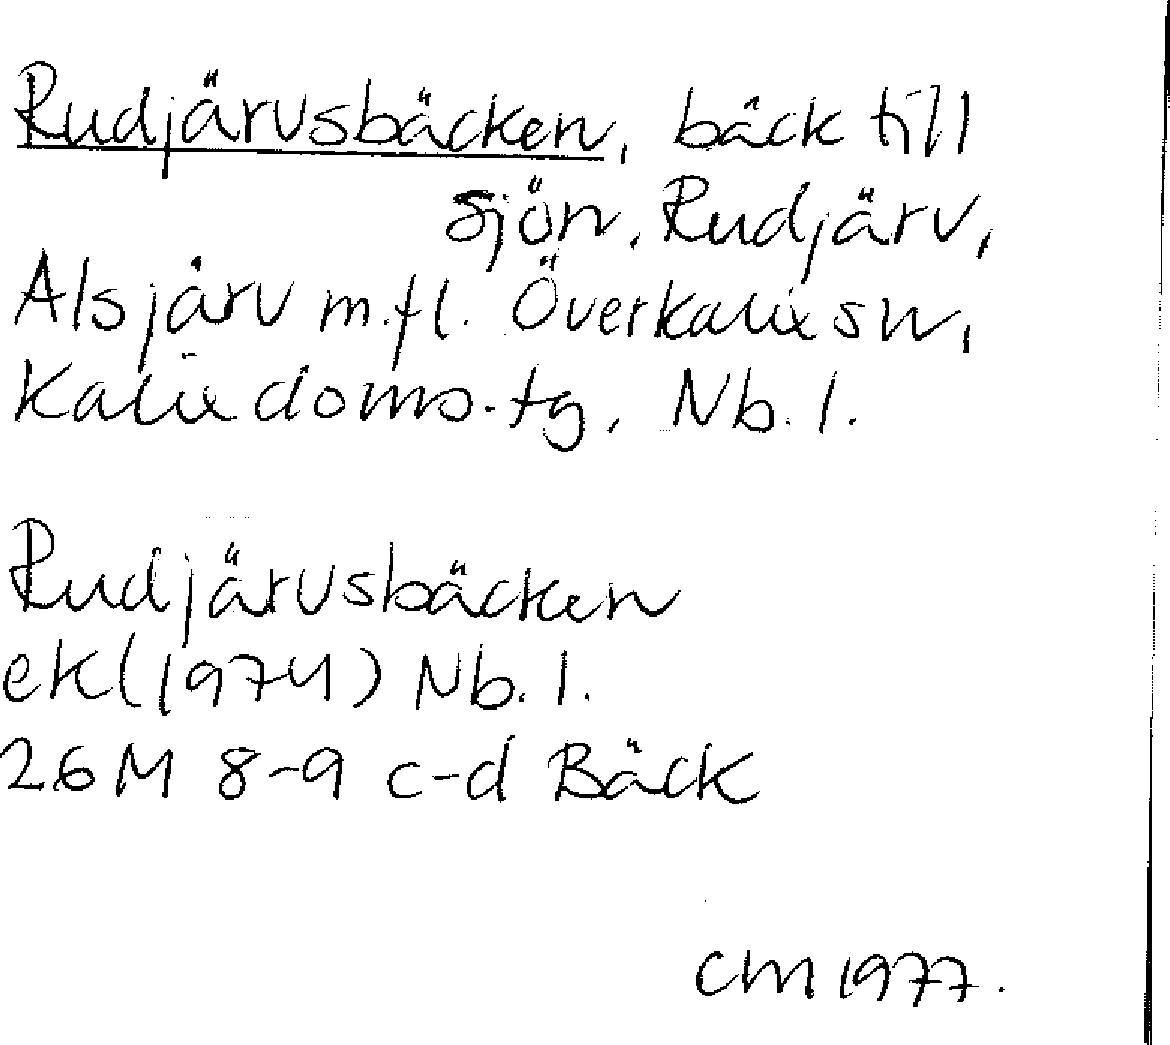 Rudjärvsbäcken, bäck till
sjön, Rudjärv,
Alsjärv m.fl. Överkalix sn,
Kalix doms.tg, Nb. l.
Rudjärvsbäcken
ek (1974) Nb. l.
26M 8-9 c-d Bäck
CM 1977.